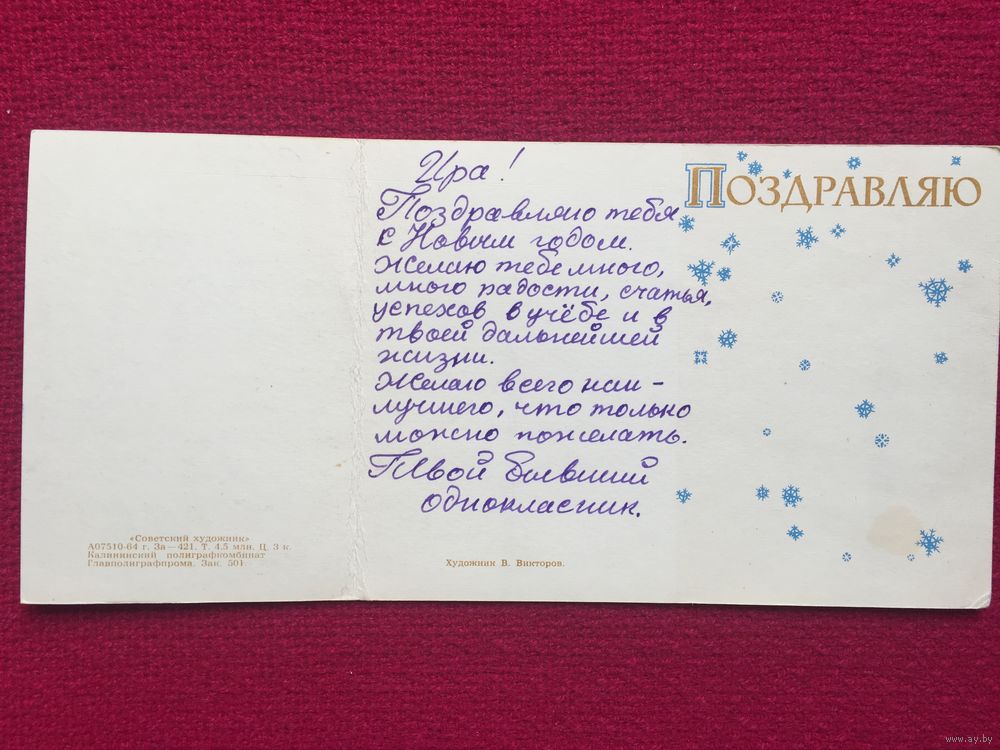 Ира!
Поздравляю тебя
с Новым годом.
Желаю тебе много,
много радости, счатья,
успехов в учёбе и в
твоей дальнейшей
жизни.
Желаю всего наи-
лучшего, что только
можно пожелать.
Твой бывший
однокласник.
ПОЗДРАВЛЯЮ
«Советский художник»
А07510-64 г. За—421. Т. 4,5 млн. Ц. 3 к.
Калининский полиграфкомбинат
Главполиграфпрома. Зак. 501
Художник В. Викторов.
www.ay.by